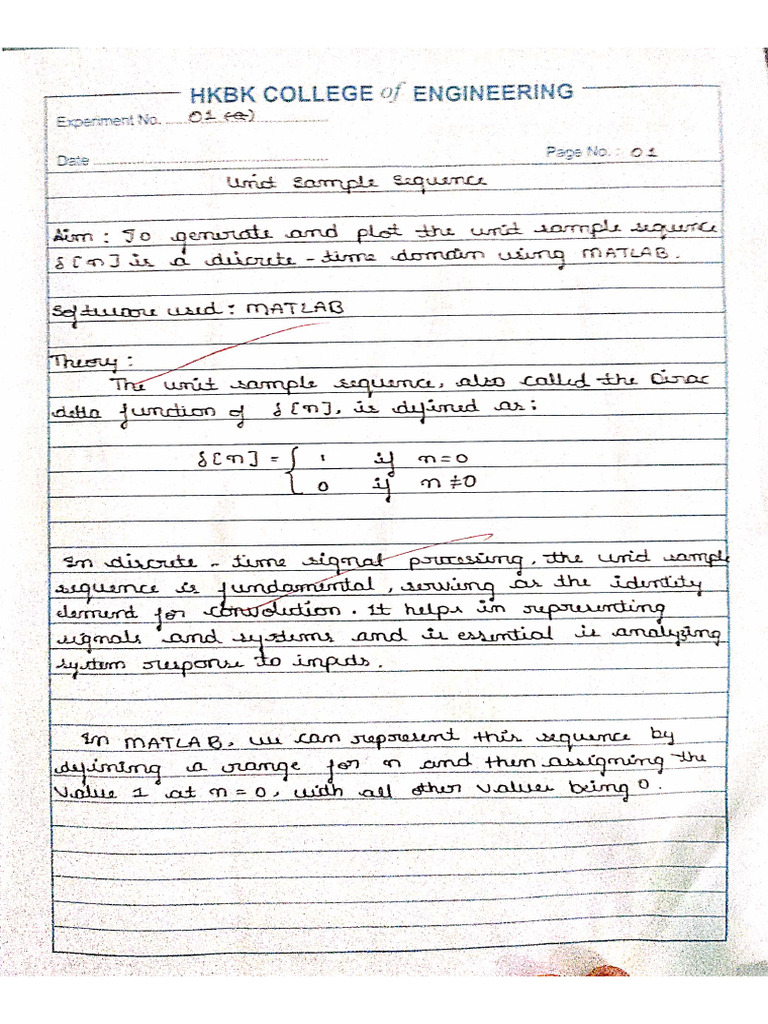 HKBK COLLEGE of ENGINEERING
Experiment No. 01 (a)
Date
Page No. : 01
Unit Sample Sequence
Aim : To generate and plot the unit sample sequence
δ[n] is a discrete - time domain using MATLAB.
Software used : MATLAB
Theory :
The unit sample sequence, also called the Dirac
delta function of δ[n], is defined as :
δ[n] = { 1 if n=0
0 if n≠0
In discrete - time signal processing, the unit sample
sequence is fundamental, serving as the identity
element for convolution. It helps in representing
signals and systems and is essential is analyzing
system response to inputs.
In MATLAB, we can represent this sequence by
defining a range for n and then assigning the
value 1 at n=0, with all other values being 0.